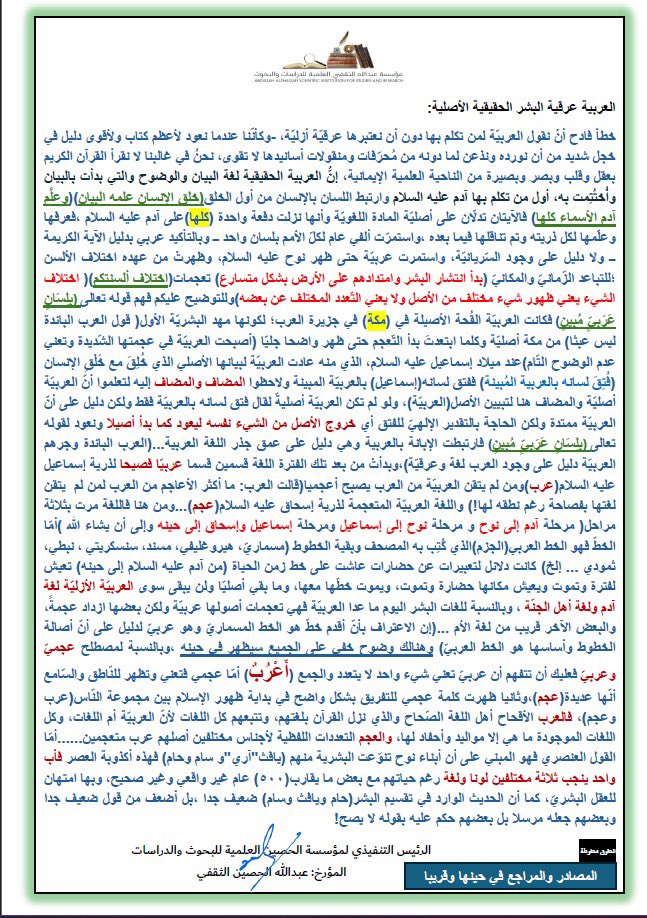 مؤسسة عبدالله الثقفي العلمية للدراسات والبحوث
ABDULLAH ALTHAQAFI SCIENTIFIC INSTITUTION FOR STUDIES AND RESEARCH
العربية عرقية البشر الحقيقية الأصلية:
خطأ فادح أنْ نقول العربيّة لمن تكلم بها دون أن نعتبرها عرقيّة أزليّة، -وكأنّنا عندما نعود لأعظم كتاب ولأقوى دليل في
خجل شديد من أن نورده ونذعن لما دونه من مُحرّفات ومنقولات أسانيدها لا تقوى، نحنُ في غالبنا لا نقرأ القرآن الكريم
بعقل وقلب وبصر وبصيرة من الناحية العلمية الإيمانية، إنَّ العربية الحقيقية لغة البيان والوضوح والتي بدأت بالبيان
وأُختُتِمت به، أول من تكلم بها آدم عليه السلام وارتبط اللسان بالإنسان من أول الخلق(خلق الإنسان علمه البيان)(وعلَّم
آدم الأسماء كلها) فالآيتان تدلّان على أصليّة المادة اللغويّة وأنها نزلت دفعة واحدة (كلها)على آدم عليه السلام ،فعرفها
وعلّمها لكل ذريته وتم تناقلها فيما بعده ،واستمرّت ألفي عام لكلّ الأمم بلسان واحد – وبالتأكيد عربي بدليل الآية الكريمة
– ولا دليل على وجود السّريانيّة، واستمرت عربيّة حتى ظهر نوح عليه السلام، وظهرتْ من عهده اختلاف الألسن
؛للتباعد الزّمانيّ والمكانيّ (بدأ انتشار البشر وامتدادهم على الأرض بشكل متسارع) تعجمات(اختلاف ألسنتكم)( اختلاف
الشيء يعني ظهور شيء مختلف من الأصل ولا يعني التّعدد المختلف عن بعضه)وللتوضيح عليكم فهم قوله تعالى(بلسانٍ
عَرَبيّ مُبينٍ) فكانت العربيّة القُحة الأصيلة في (مكة) في جزيرة العرب؛ لكونها مهد البشريّة الأول( قول العرب البائدة
ليس عبثًا) من مكة أصليّة وكلما ابتعدتْ بدأ التّعجم حتى ظهر واضحا جليًا (أصبحت العربيّة في عجمتها الشّديدة وتعني
عدم الوضوح التّام)عند ميلاد إسماعيل عليه السلام، الذي منه عادت العربيّة لبيانها الأصلي الذي خُلِقَ مع خَلْقِ الإنسان
(فُتِقَ لسانه بالعربية المُبينة) ففتق لسانه(إسماعيل) بالعربيّة المبينة ولاحظوا المضاف والمضاف إليه لتعلموا أنّ العربيّة
أصليّة والمضاف هنا لتبيين الأصل(العربية)، ولو لم تكن العربيّة أصليةً لقال فتق لسانه بالعربيّة فقط ولكن دليل على أنّ
العربية ممتدة ولكن الحاجة بالتقدير الإلهيّ للفتق أي خروج الأصل من الشيء نفسه ليعود كما بدأ أصيلا ونعود لقوله
تعالى (بلسانٍ عَرَبيّ مُبينٍ) فارتبطت الإبانة بالعربية وهي دليل على عمق جذر اللغة العربية...(العرب البائدة وجرهم
العربيّة دليل على وجود العرب لغة وعرقيّة)،وبدأتْ من بعد تلك الفترة اللغة قسمين قسما عربيًا فصيحا لذرية إسماعيل
عليه السلام(عرب)ومن لم يتقن العربيّة من العرب يصبح أعجميا(قالت العرب: ما أكثر الأعاجم من العرب لمن لم يتقن
لغتها بفصاحة رغم نطقه لها!) واللغة العربيّة المتعجمة لذرية إسحاق عليه السلام(عجم)...ومن هنا فاللغة مرت بثلاثة
مراحل( مرحلة آدم إلى نوح و مرحلة نوح إلى إسماعيل ومرحلة إسماعيل وإسحاق إلى حينه وإلى أن يشاء الله )أمّا
الخطّ فهو الخط العربي(الجزم)الذي كُتِب به المصحف وبقية الخطوط (مسماريّ، هيروغليفي، مسند، سنسكريتي ، نبطي،
ثمودي ... إلخ) كانت دلائل لتعبيرات عن حضارات عاشت على خط زمن الحياة (من آدم عليه السلام إلى حينه) تعيش
لفترة وتموت ويعيش مكانها حضارة وتموت، ويموت خطّها معها، وما بقي أصليًا ولن يبقى سوى العربيّة الأزلية لغة
آدم ولغة أهل الجنّة ، وبالنسبة للغات البشر اليوم ما عدا العربية فهي تعجمات أصولها عربيّة ولكن بعضها ازداد عجمةً،
والبعض الآخر قريب من لغة الأم ...(إن الاعتراف بأنّ أقدم خطّ هو الخط المسماريّ وهو عربيّ لدليل على أنّ أصالة
الخطوط وأساسها هو الخط العربيّ) وهنالك وضوح خفي على الجميع سيظهر في حينه ،وبالنسبة لمصطلح عجميّ
وعربيّ فعليك أن تتفهم أن عربيّ تعني شيء واحد لا يتعدد والجمع (أَعْرُبٌ) أمّا عجمي فتعني وتظهر للنّاطق والسّامع
أنّها عديدة(عجم)،وثانيا ظهرت كلمة عجمي للتفريق بشكل واضح في بداية ظهور الإسلام بين مجموعة النّاس(عرب
وعجم)، فالعرب الأقحاح أهل اللغة الصّحاح والذي نزل القرآن بلغتهم، وتتبعهم كل اللغات لأنّ العربيّة أم اللغات، وكل
اللغات الموجودة ما هي إلا مواليد وأحفاد لها، والعجم التعددات اللفظية لأجناس مختلفين أصلهم عرب متعجمين......أمّا
القول العنصري فهو المبني على أن أبناء نوح تنوّعت البشرية منهم (يافث"آري"و سام وحام) فهذه أكذوبة العصر فأب
واحد ينجب ثلاثة مختلفين لونا ولغة رغم حياتهم مع بعض ما يقارب(٥٠٠) عام غير واقعي وغير صحيح، وبها امتهان
للعقل البشري، كما أن الحديث الوارد في تقسيم البشر(حام ويافث وسام) ضعيف جدا ،بل أضعف من قول ضعيف جدا
وبعضهم جعله مرسلا بل بعضهم حكم عليه بقوله لا يصح!
الرئيس التنفيذي لمؤسسة الحصين العلمية للبحوث والدراسات
المؤرخ: عبدالله الحصين الثقفي
الحقوق محفوظة
المصادر والمراجع في حينها وقريبا